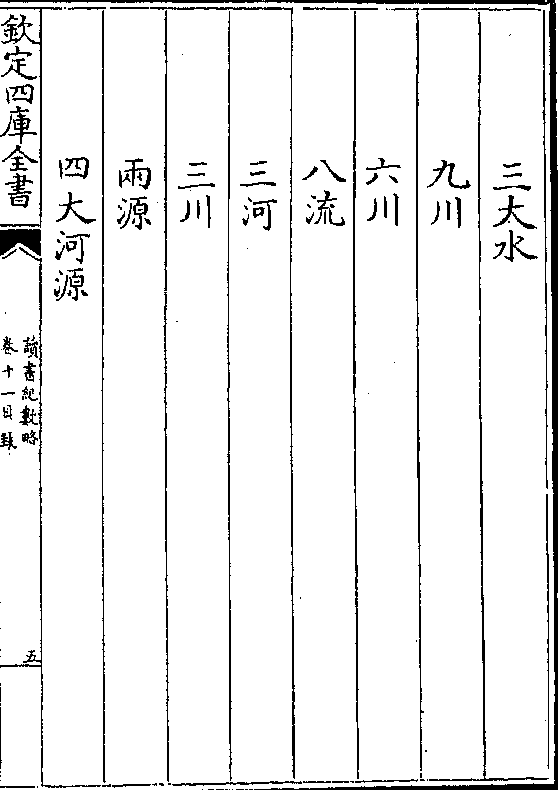 三大水
九川
六川
八流
三河
三川
兩源
四大河源
欽定四庫全書
讀書紀數略
卷十一目録
五